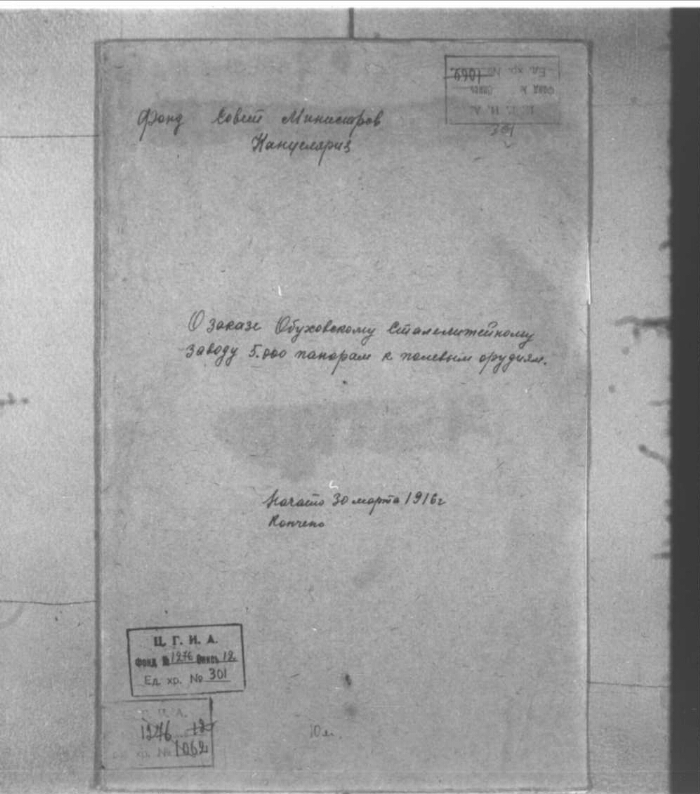 Фонд Совет Министров
Канцелярия
О заказе Обуховскому Сталелитейному
заводу 5.000 панорам к полевым орудиям.
Начато 30 марта 1916 г
Кончено
Ц. Г. И. А.
Фонд № 1276 Опись 12
Ед. хр. № 301
1276 12
№ 1062
10 л.
Ц. Г. И. А.
Фонд № Опись
Ед. хр. № 1062
301